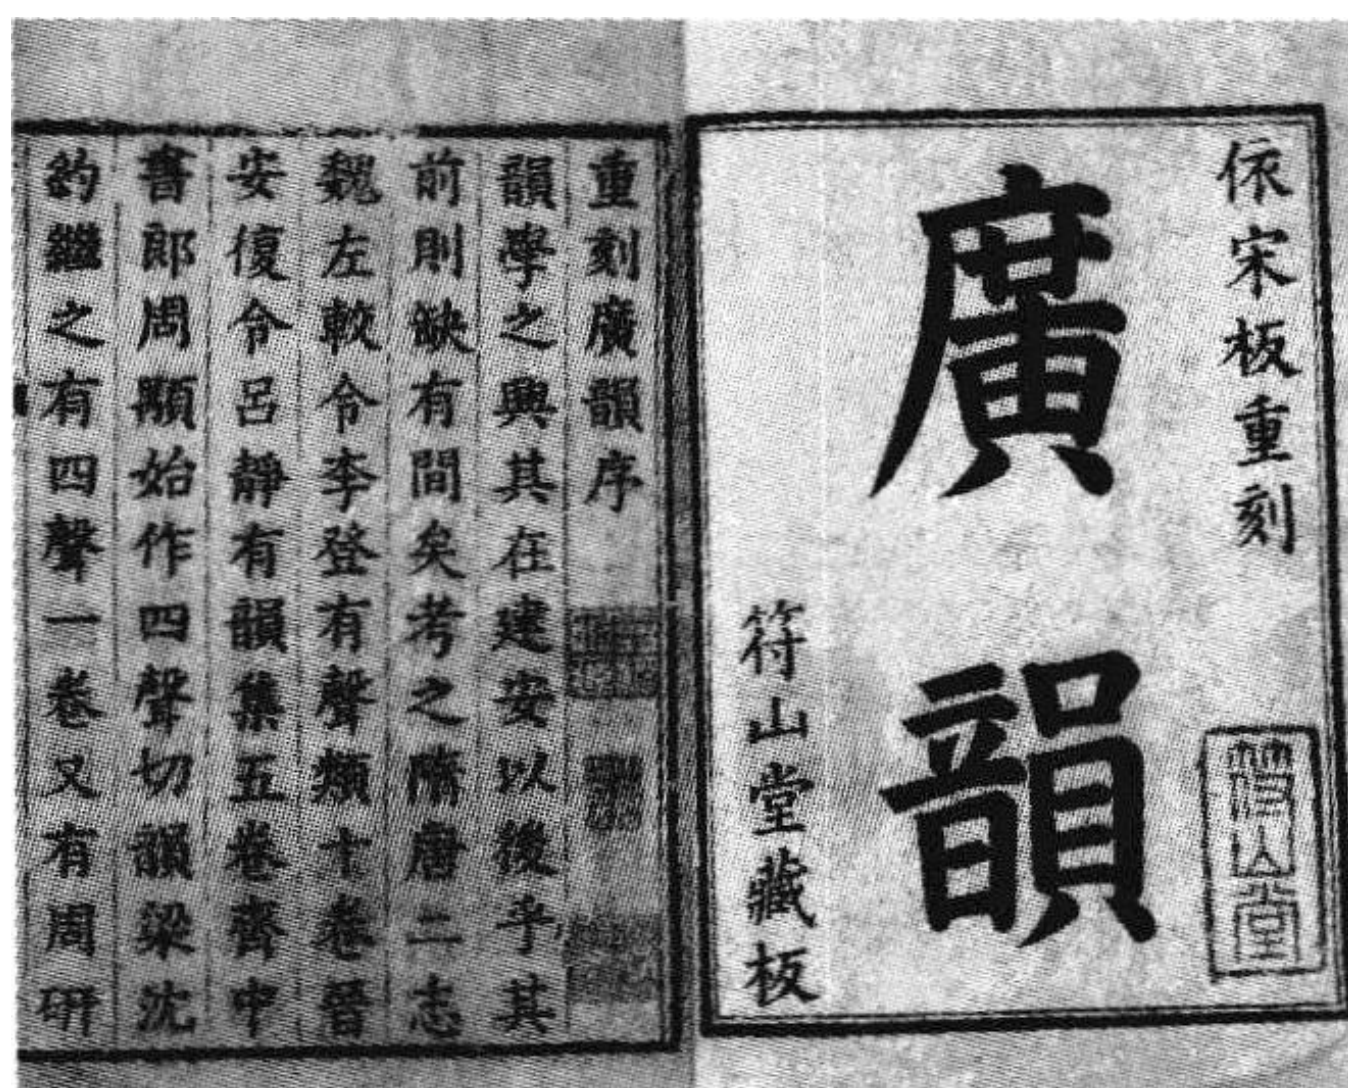 依宋板重刻
廣韻
符山堂藏板
符山堂
重刻廣韻序
韻學之興其在建安以後乎其
前則缺有間矣考之隋唐二志
魏左軟令李登有聲類十卷晉
安復令呂靜有韻集五卷齊中
書郎周顒始作四聲切韻梁沈
約繼之有四聲一卷又有周研